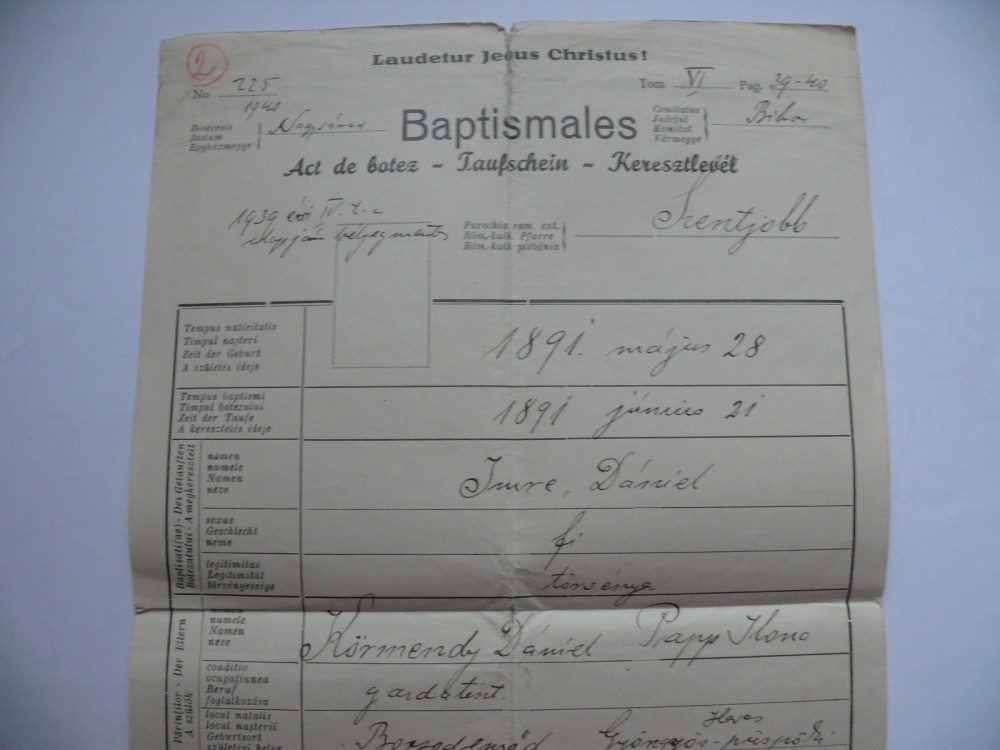 Laudetur Jesus Christus!
2
No 225
1940
Tom VI Pag. 39-40
Dioecesis
Bistum
Egyházmegye
Baptismales
Comitatus
Județul
Komitat
Vármegye
Bihar
Act de botez - Taufschein - Keresztlevél
1939 évi IV. t. c
alapján bélyegmentes
Parochia rom. cat.
Röm.-kath. Pfarre
Róm.-kath plébánia
Szentjobb
Tempus nativitatis
Timpul nașteri
Zeit der Geburt
A születés ideje
1891. május 28
Tempus baptismi
Timpul botezului
Zeit der Taufe
A keresztelés ideje
1891 június 21
Baptisati(ae) - Des Getauften
Botezatului - A megkeresztelt
nomen
numele
Namen
neve
Imre, Dániel
sexus
Geschlecht
neme
fi
legitimitas
Legitimität
törvényessége
törvényes
Părinților - Der Eltern
A szülők
nomen
numele
Namen
neve
Körmendy Dániel Papp Ilona
conditio
ocupațiunea
Beruf
foglalkozása
gardatiszt.
locul natalis
locul nașterii
Geburtsort
születési helye
Heves